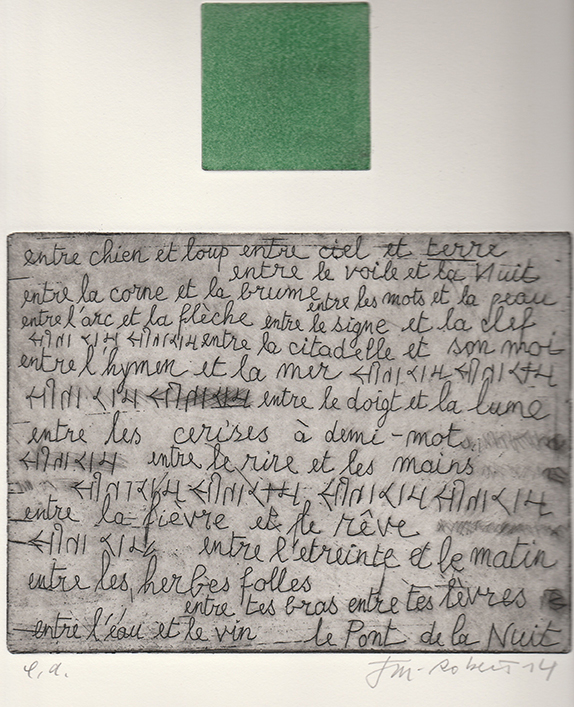 entre chien et loup entre ciel et terre
entre le voile et la Nuit
entre la corne et la brume entre les mots et la peau
entre l'arc et la flèche entre le signe et la clef
entre la citadelle et son moi
entre l'hymen et la mer
entre le doigt et la lume
entre les cerises à demi-mot
entre le rire et les mains
entre la fièvre et le rêve
entre l'etreinte et le matin
entre les herbes folles
entre tes bras entre tes lèvres
entre l'eau et le vin le Pont de la Nuit
e.a. JM-Robert 14